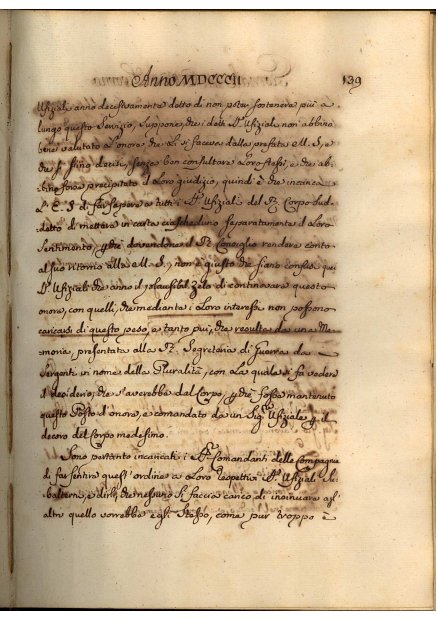 Anno MDCCCII 139
Ufiziali anno decisivamente detto di non poter sostenere più a
lungo questo servizio, suppone, che i detti Sri Ufiziali non abbino
bene valutato l'onore che Li si faceva dalla prefata M. S., e
che si sino decisi, senza ben consultare Loro stessi, e che ab
bino forse precipitato il Loro giudizio, quindi è che incarica
S. di far sapere a tutti i Sri Ufiziali del Rl Corpo sud
detto di mettere in carta ciascheduno separatamente il Loro
sentimento, che dovendone il Rl Consiglio rendere conto
al suo ritorno alla M. S., non è giusto che siano confusi quei
Sri Ufiziali che anno il plausibil zelo di continovare questo
onore, con quelli, che mediante i Loro interessi non possono
caricarsi di questo peso, e tanto più, che resulta da una Me
moria, presentata alla Rl Segreteria di Guerra da
Sergenti in nome della Pluralità, con la quale si fa vedere
il desiderio, che s'averebbe dal Corpo, che fosse mantenuto
questo Posto d'onore, e comandato da un Sigre Ufiziale il
decoro del Corpo medesimo.
Sono pertanto incaricati i Sri Comandanti delle Compagnie
di far sentire quest'ordine a Loro respettivi Sri Ufiziali Su
balterni, e dirli, che nessuno si faccia carico di insinuare agl'
altri quello vorrebbe egli stesso, come pur troppo è